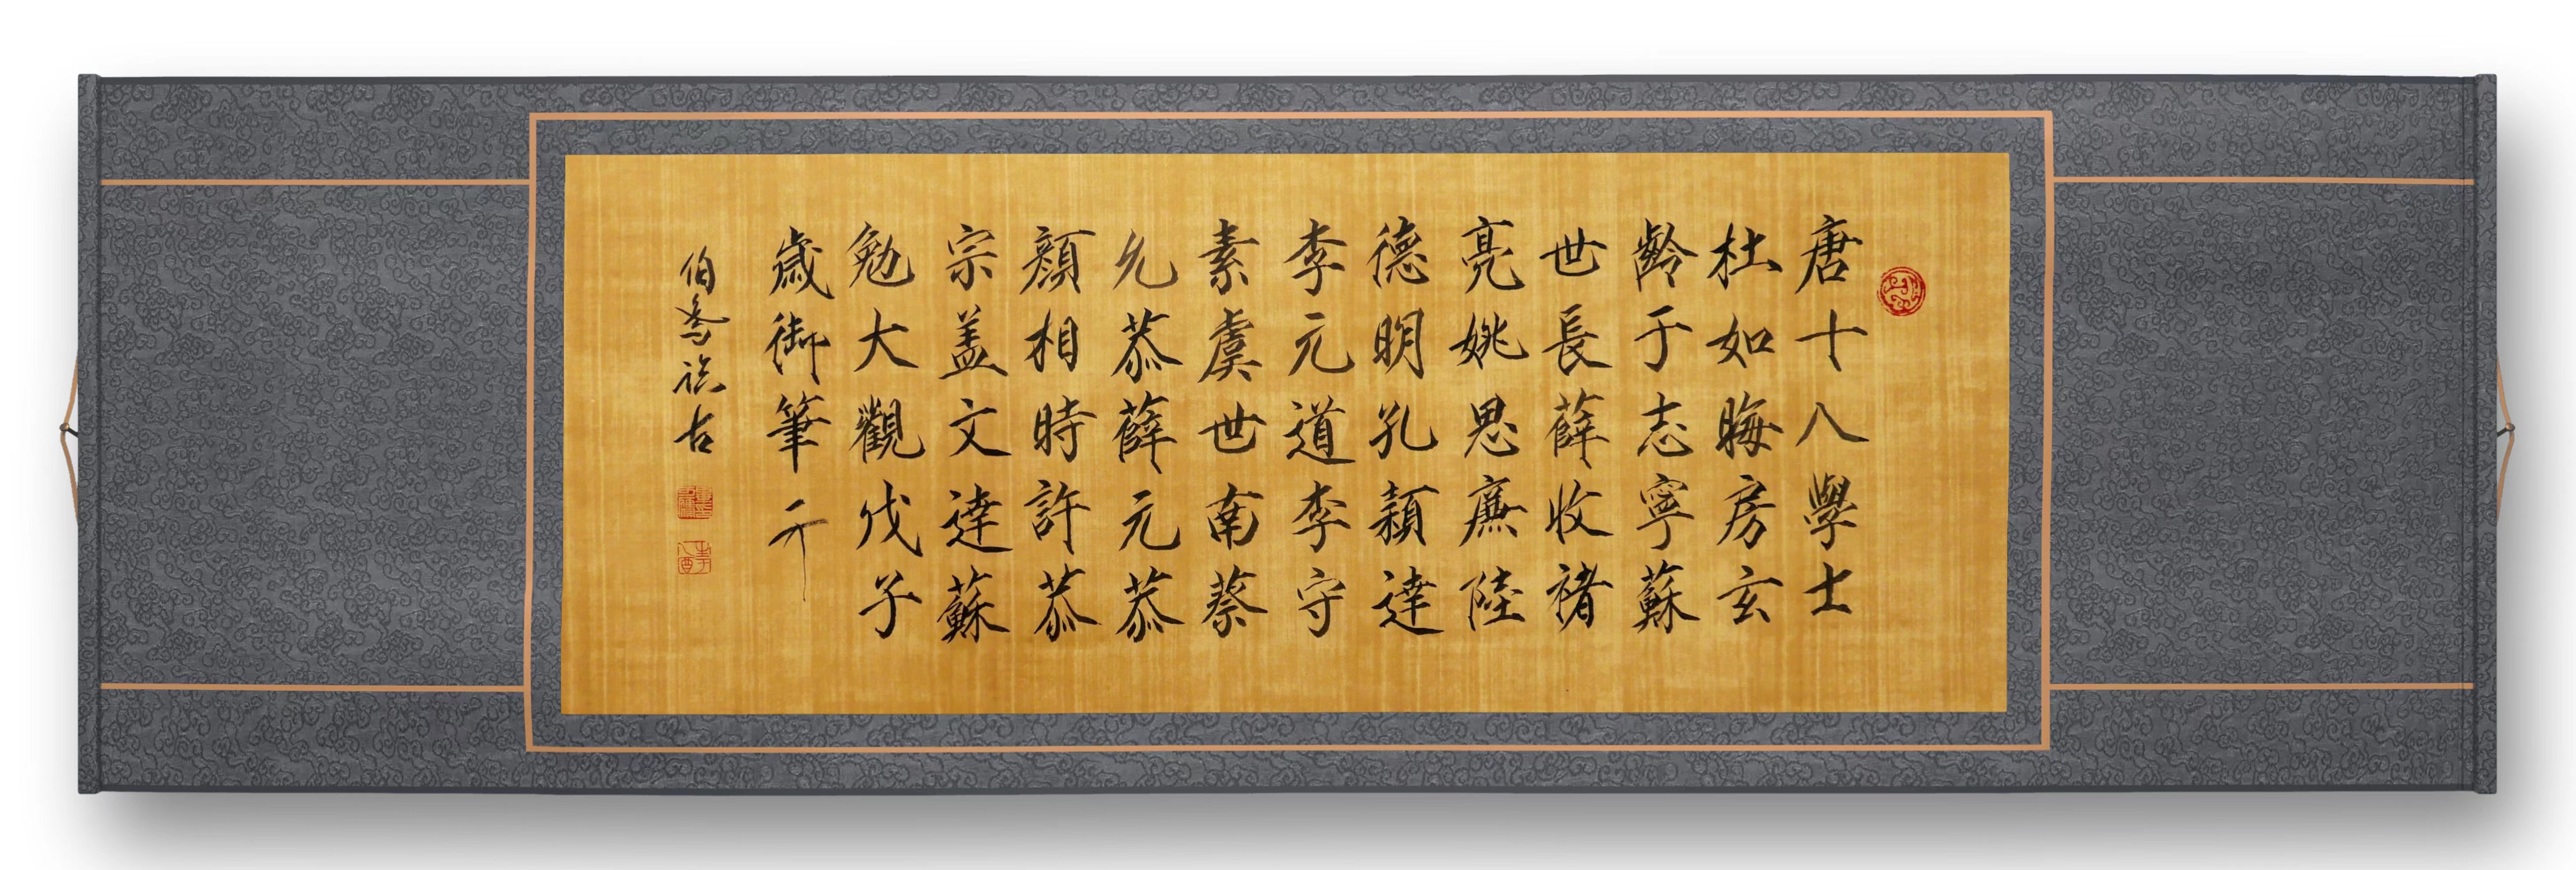 唐十八學士
杜如晦房玄
齡于志寧蘇
世長薛收褚
亮姚思廉陸
德明孔穎達
李元道李守
素虞世南蔡
允恭薛元恭
顏相時許恭
宗蓋文達蘇
勉大觀戊子
歲御筆
伯 臨古